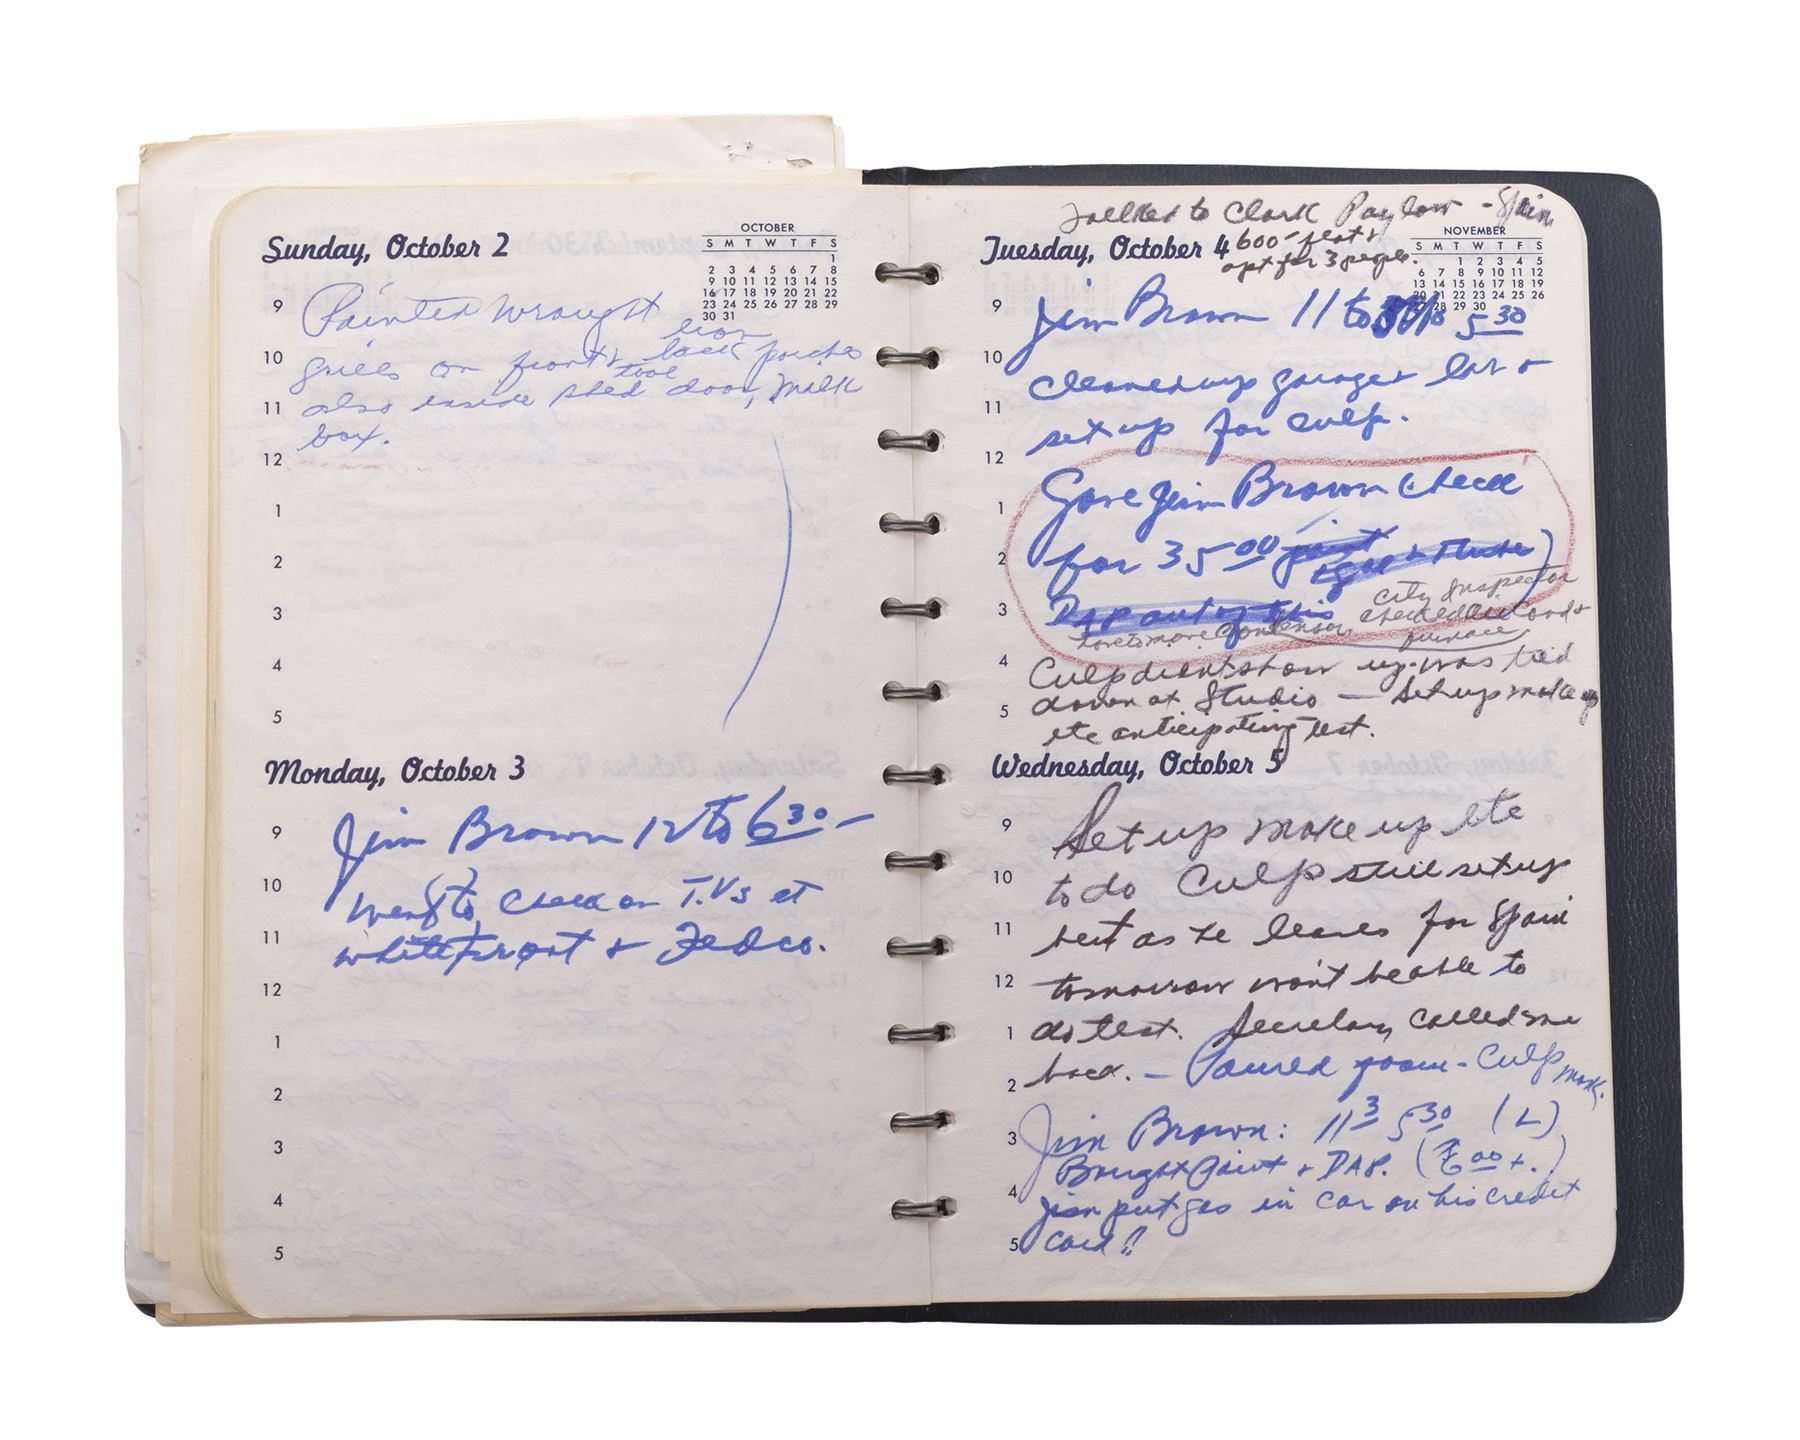 Sunday, October 2
OCTOBER
S M T W T F S
1
2 3 4 5 6 7 8
9 10 11 12 13 14 15
16 17 18 19 20 21 22
23 24 25 26 27 28 29
30 31
9 Painted Wrought iron
10 on front & back porches
11 also inside tool shed door, Milk
box.
12
1
2
3
4
5
Monday, October 3
9 Jim Brown 12 to 6 30 –
10 went to check on T.V.s at
11 whitefront & Fedco.
12
1
2
3
4
5
Talked to Clark Paylow - Spain
600 - flat &
apt for 3 people.
Tuesday, October 4
NOVEMBER
S M T W T F S
1 2 3 4 5
6 7 8 9 10 11 12
13 14 15 16 17 18 19
20 21 22 23 24 25 26
27 28 29 30
9 Jim Brown 11 to 5 30
10 Cleaned up garage & lab &
11 set up for Culp.
12
1 Gave Jim Brown check
2 for 35 00 paint
3 Dap out of this
City Inspector
checked
furnace
4 Culp didn't show up - was tied
down at Studio — Set up make up
5 etc anticipating test.
Wednesday, October 5
9 Set up make up etc
10 to do Culp still set up
11 but as he leaves for Spain
12 tomorrow won't be able to
1 do test. Secretary called me
2 back. – Poured foam - Culp mask.
3 Jim Brown: 11 3 5 30 (L)
Bought Paint & DAP. (6 00 +.)
4 Jim put gas in car on his credit
5 card!!